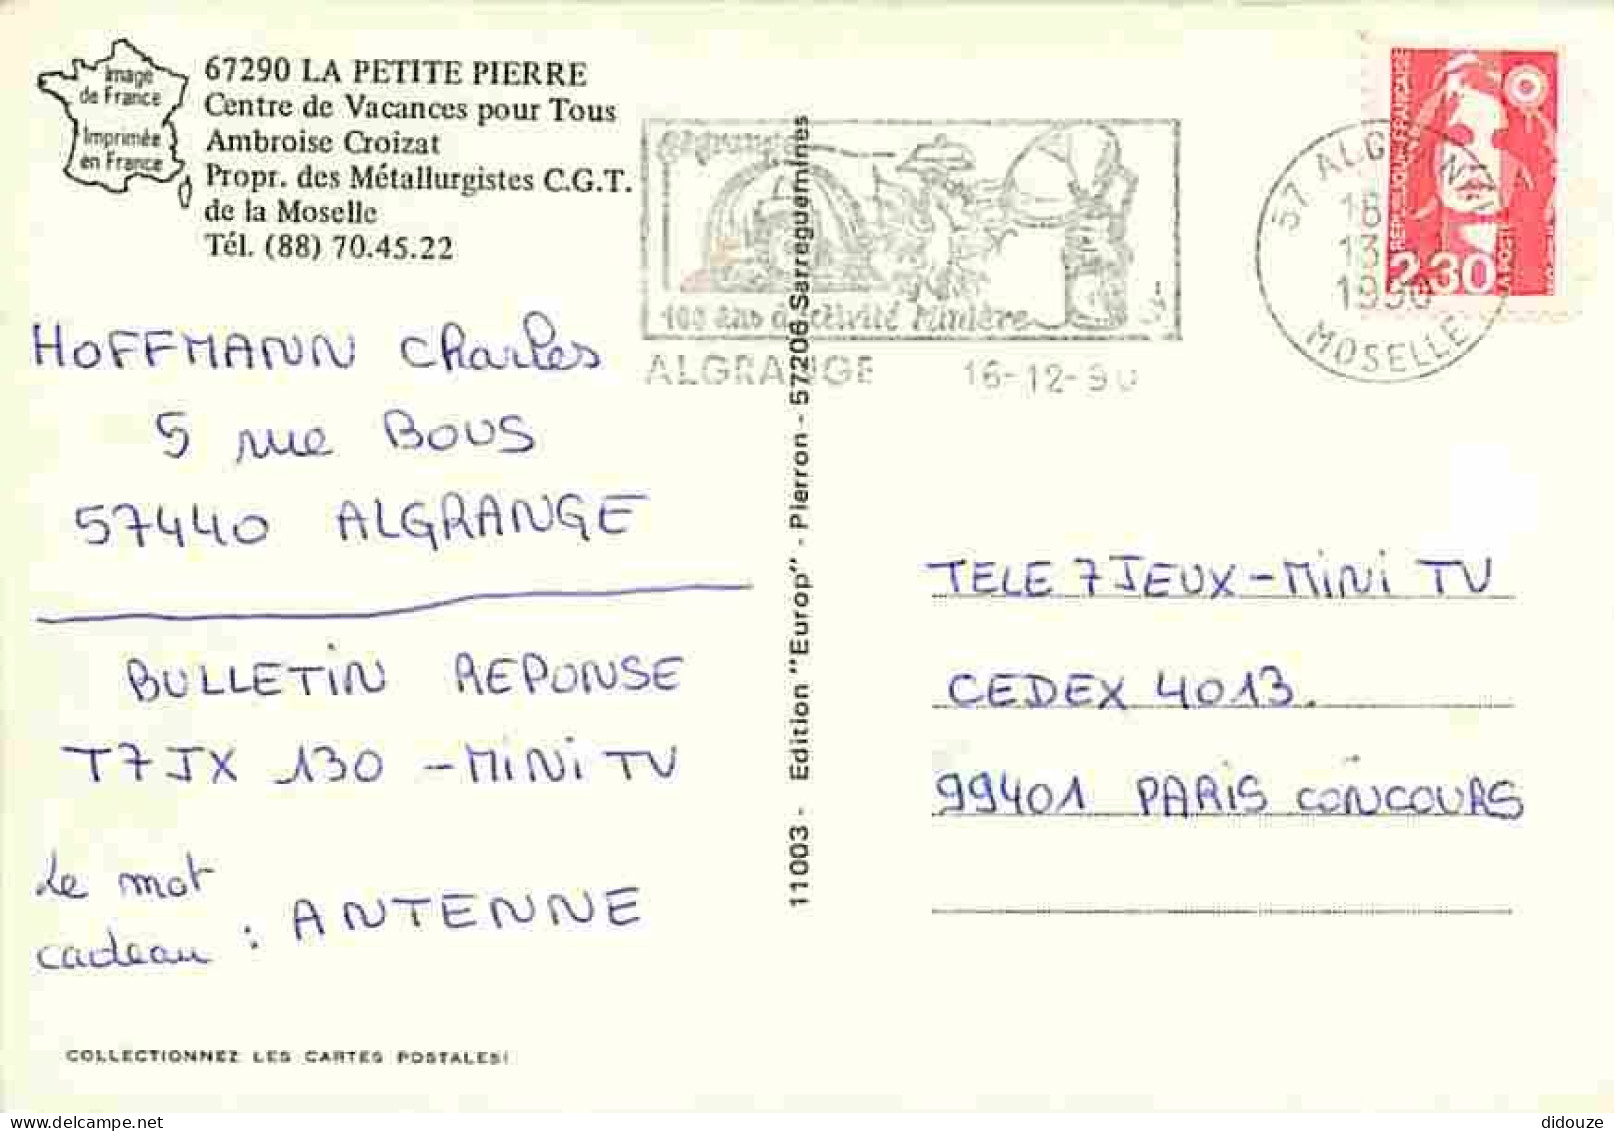 Image
de France
Imprimée
en France
67290 LA PETITE PIERRE
Centre de Vacances pour Tous
Ambroise Croizat
Propr. des Métallurgistes C.G.T.
de la Moselle
Tél. (88) 70.45.22
HOFFMANN Charles
5 rue BOUS
57440 ALGRANGE
BULLETIN REPONSE
T7JX 130 - MINI TV
Le mot
cadeau : ANTENNE
COLLECTIONNEZ LES CARTES POSTALES!
11003 - Edition "Europ" - Pierron - 57206 Sarreguemines
Algrange
100 ans d'activité Minière
ALGRANGE 16-12-90
57 ALGRANGE
18
13
1990
MOSELLE
REPUBLIQUE FRANCAISE
2,30
LA POSTE
TELE 7 JEUX - MINI TV
CEDEX 4013.
99401 PARIS CONCOURS
didouze